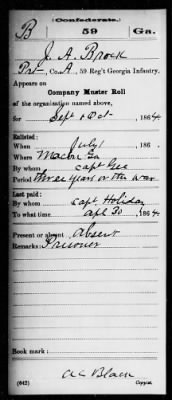 (Confederate.)
B 59 Ga.
J. A. Brock
Pvt, Co. A, 59 Reg't Georgia Infantry.
Appears on
Company Muster Roll
of the organization named above,
for Sept & Oct, 1864
Enlisted:
When July 1, 186
Where Macon Ga
By whom Capt Gee
Period three years or the war
Last paid:
By whom Capt Holiday
To what time Apl 30, 1864
Present or absent Absent
Remarks: Prisoner
Book mark:
A C Black
(642) Copyist.